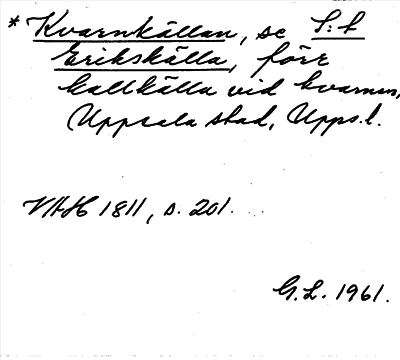 * Kvarnkällan, se S:t
Erikskälla, förr
kallkälla vid kvarnen,
Uppsala stad, Upps. l.
VAH 1811, s. 201.
G.L. 1961.